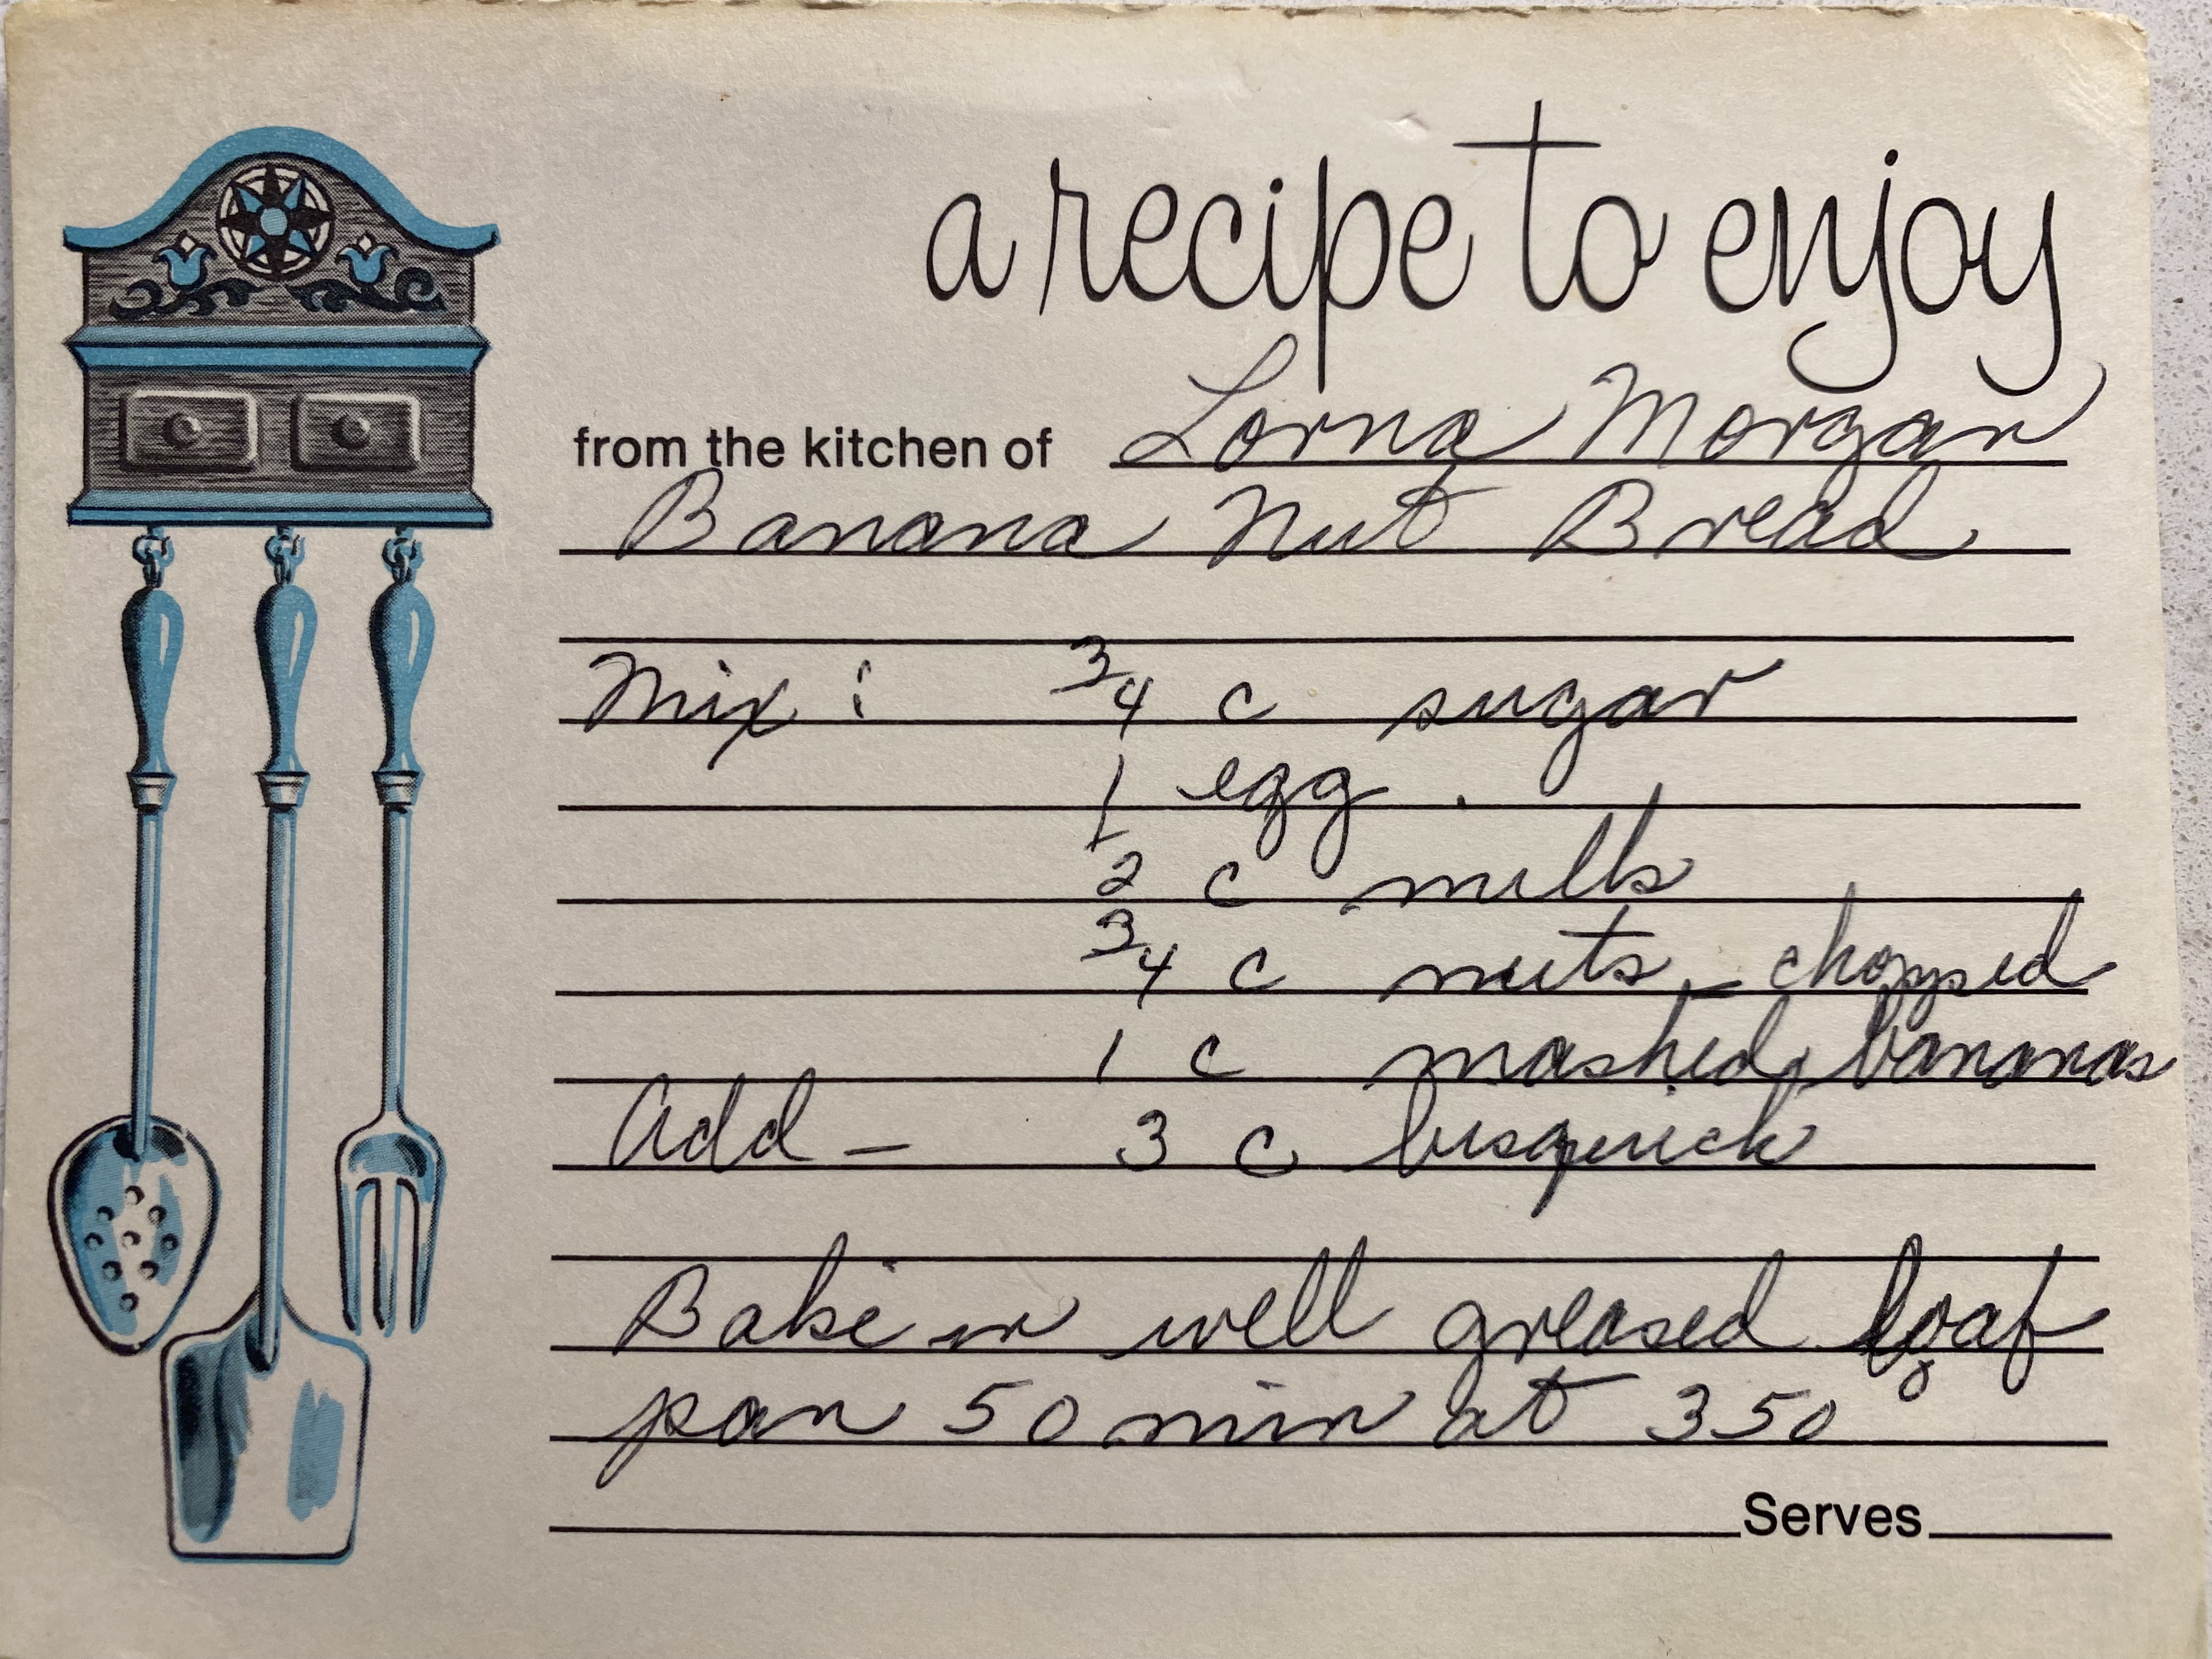 a recipe to enjoy
from the kitchen of Lorna Morgan
Banana Nut Bread
Mix: 3/4 c sugar
1 egg.
1/2 c milk
3/4 c nuts - chopped
1 c mashed bananas
Add - 3 c bisquick
Bake in well greased loaf
pan 50 min at 350°
Serves